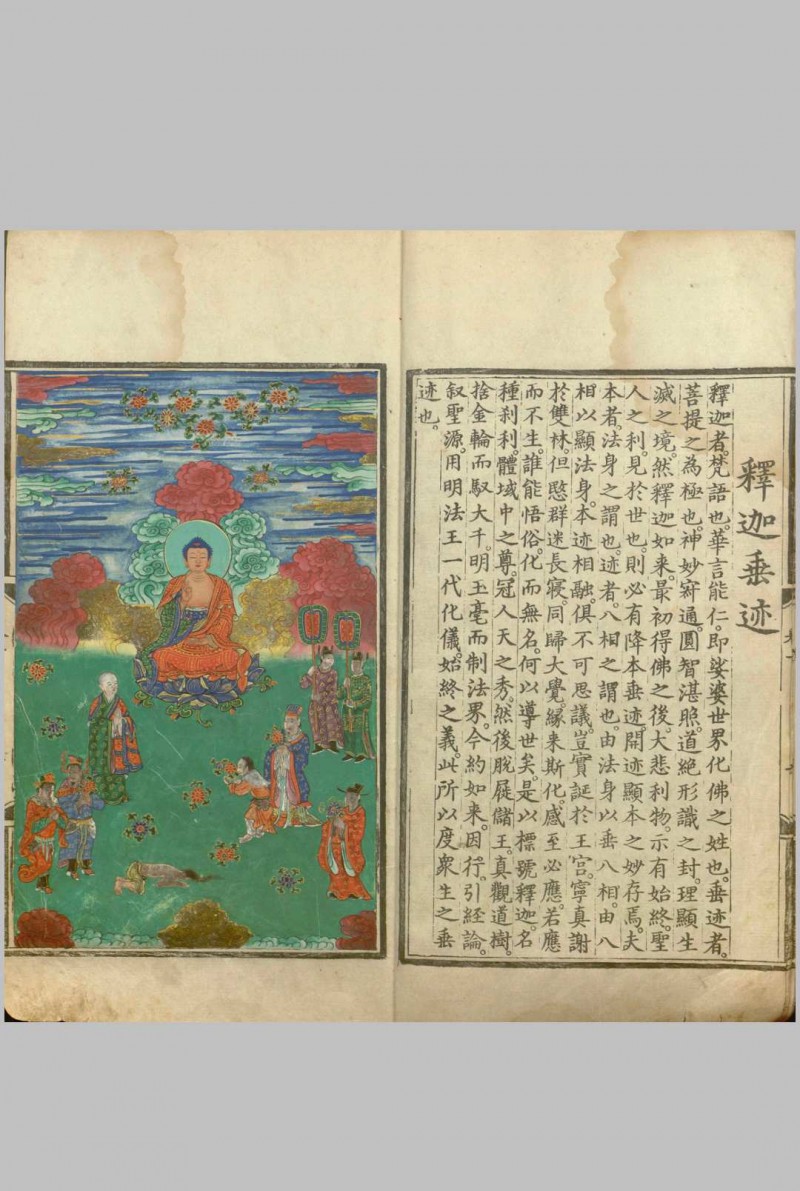 釋迦垂迹
釋迦者。梵語也。華言能仁。即娑婆世界化佛之姓也。垂迹者。
菩提之為極也。神妙寂通。圓智湛照。道絕形識之封。理顯生
滅之境。然釋迦如來。最初得佛之後。大悲利物。示有始終。聖
人之利。見於世也。則必有降本垂迹開迹顯本之妙存焉。夫
本者。法身之謂也。迹者。八相之謂也。由法身以垂八相。由八
相以顯法身。本迹相融。俱不可思議。豈實誕於王宮。寧真謝
於雙林。但愍群迷長寢。同歸大覺。緣来斯化。感至必應。若應
而不生。誰能悟俗。化而無名。何以導世矣。是以標號釋迦。名
種刹利。體域中之尊。冠人天之秀。然後脫屣儲王。真觀道樹。
捨金輪而馭大千。明玉毫而制法界。今約如来。因行。引経論。
叙聖源。用明法王一代化儀。始終之義。此所以度衆生之垂
迹也。